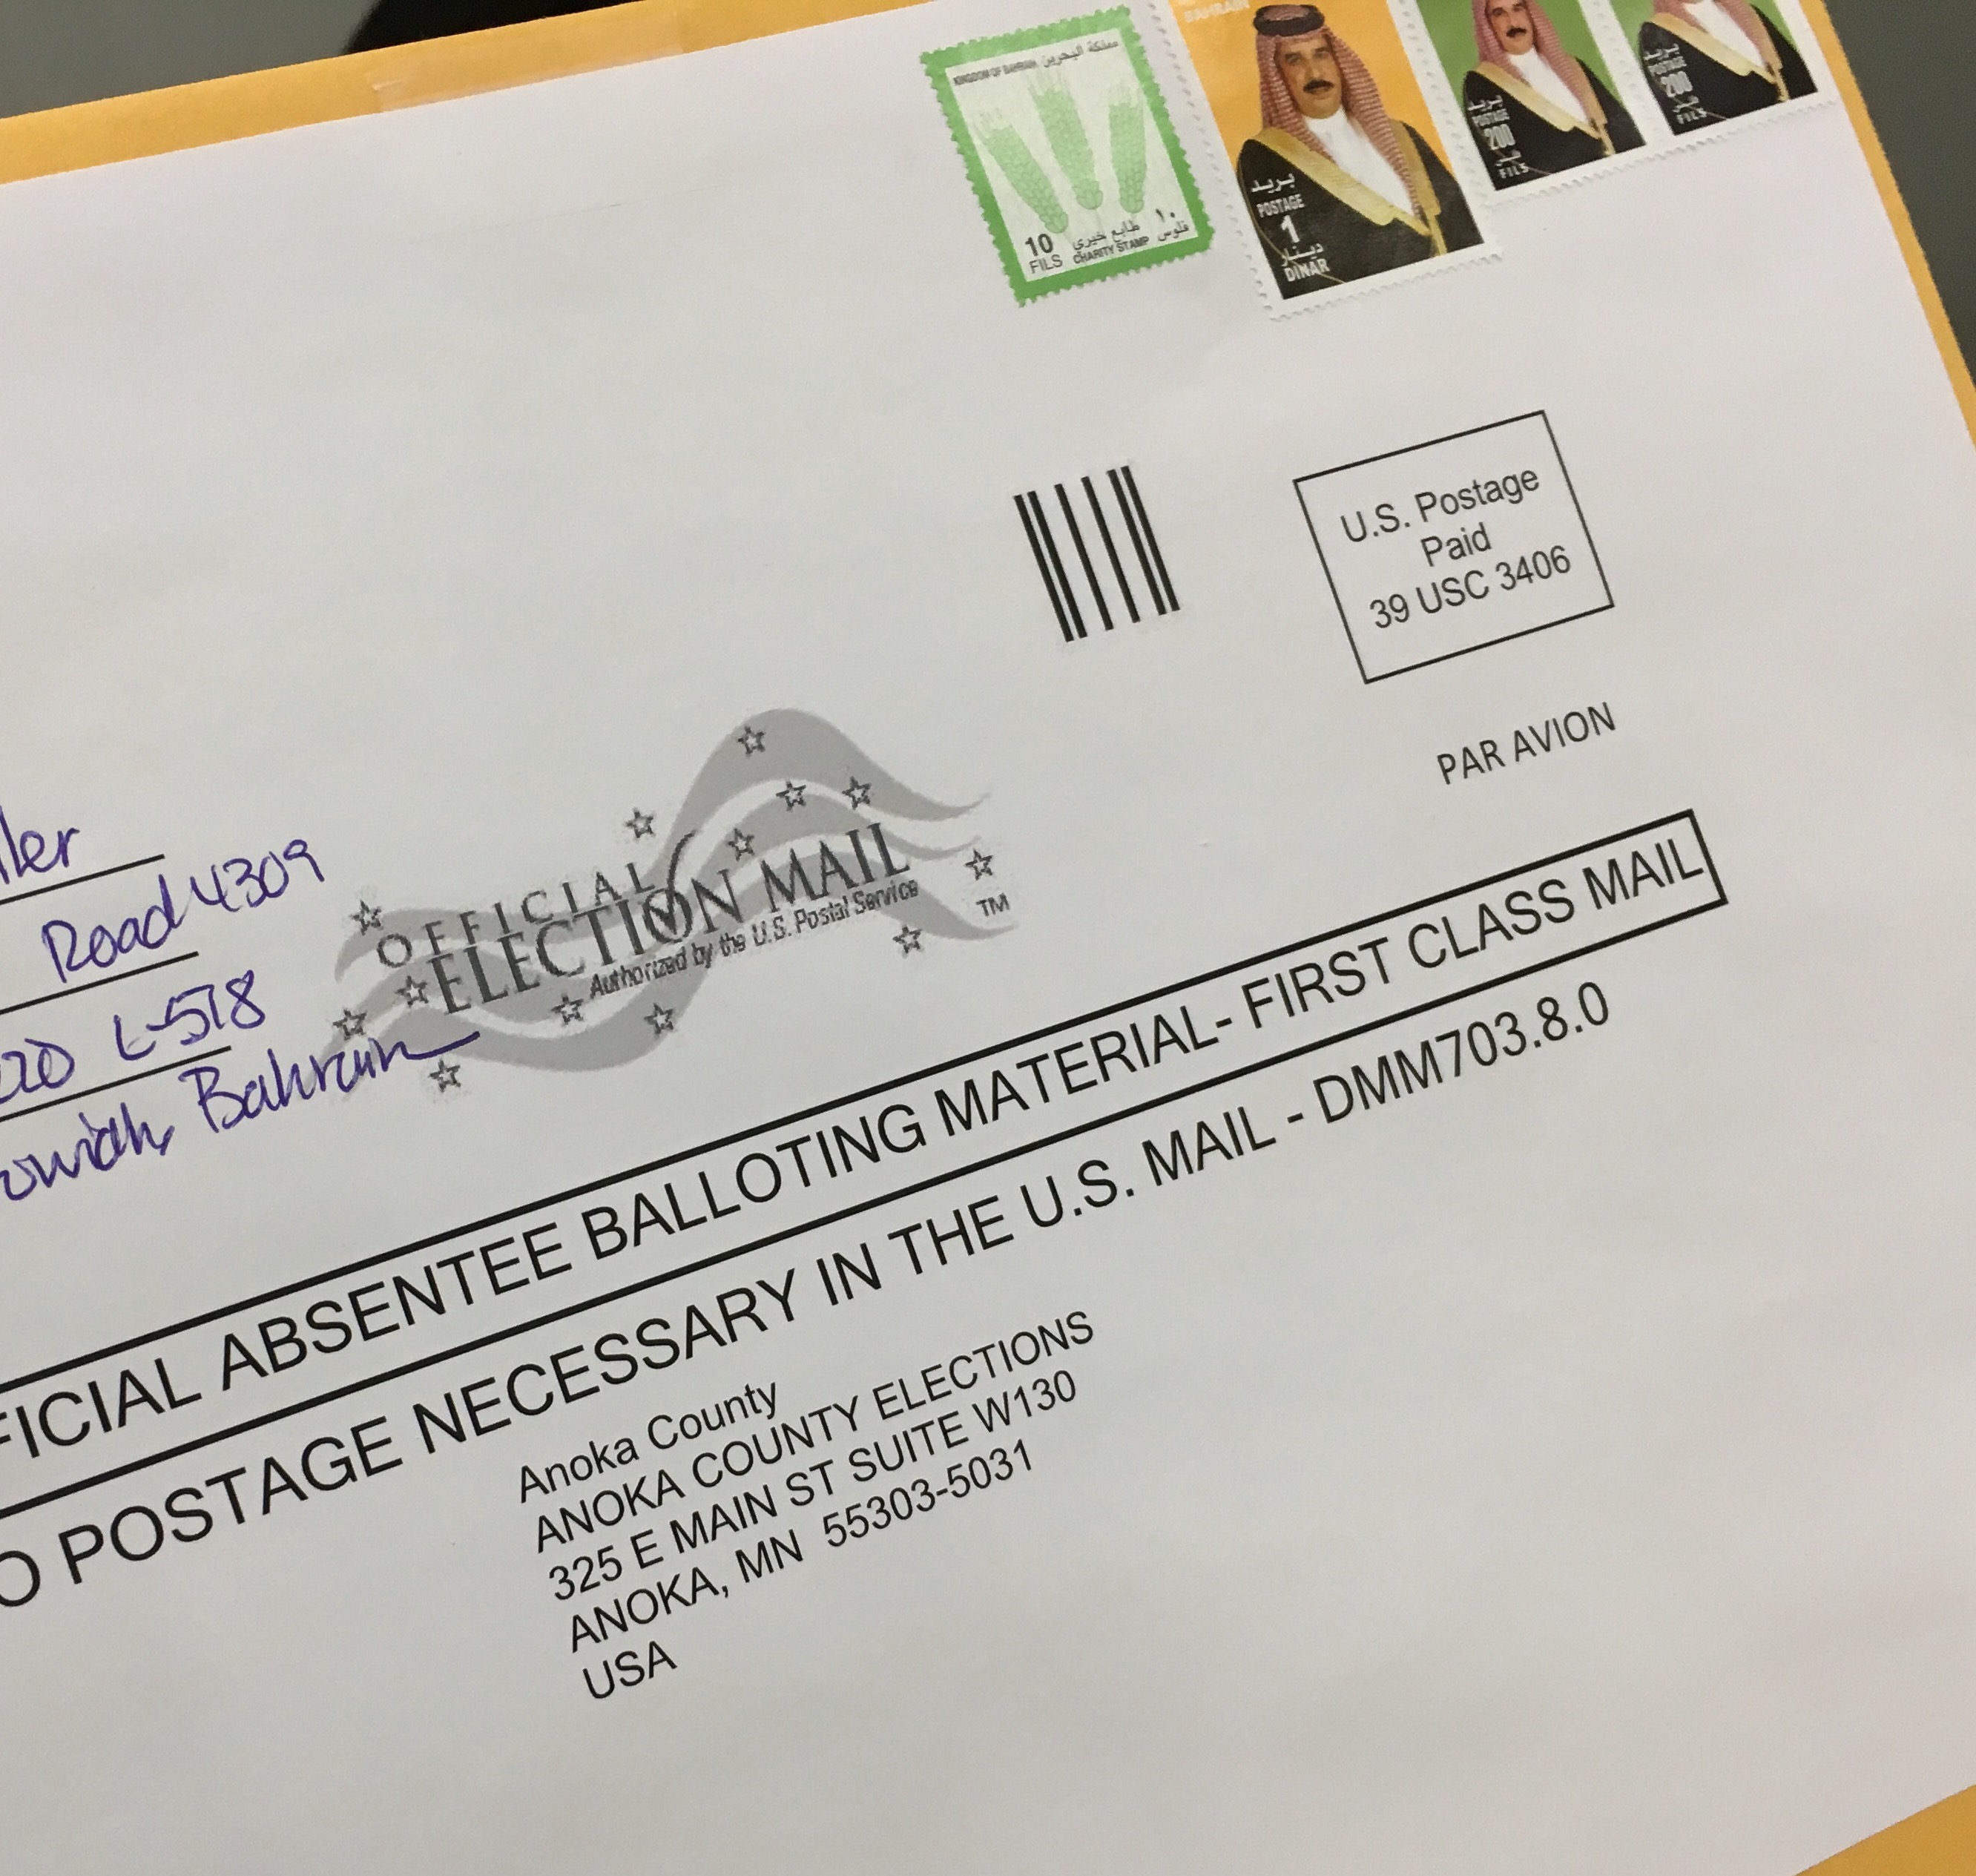 KINGDOM OF BAHRAIN مملكة البحرين
10 FILS
طابع خيري
CHARITY STAMP
١٠ فلوس
BAHRAIN
بريد
POSTAGE
1
دينار
DINAR
بريد
POSTAGE
200
فلس
FILS
بريد
POSTAGE
200
فلس
FILS
U.S. Postage
Paid
39 USC 3406
PAR AVION
ler
Road 4309
20 L-518
Bahrain
OFFICIAL
ELECTION MAIL
Authorized by the U.S. Postal Service
TM
FICIAL ABSENTEE BALLOTING MATERIAL- FIRST CLASS MAIL
O POSTAGE NECESSARY IN THE U.S. MAIL - DMM703.8.0
Anoka County
ANOKA COUNTY ELECTIONS
325 E MAIN ST SUITE W130
ANOKA, MN 55303-5031
USA